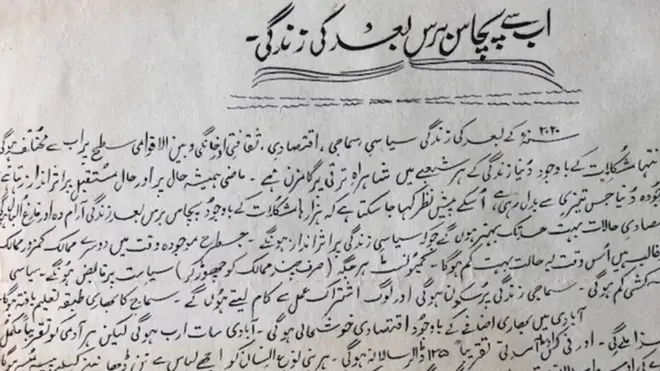 اب سے پچاس برس بعد کی زندگی۔
۲۰۲۰ سنہ کے بعد کی زندگی سیاسی، سماجی، اقتصادی، ثقافتی اور خانگی و بین الاقوامی سطح پر اب سے مختلف ہوگی
انتہا مشکلات کے باوجود دنیا زندگی کے ہر شعبے میں شاہراہ ترقی پر گامزن ہے۔ ماضی ہمیشہ حال پر اور حال مستقبل پر اثر انداز رہتا ہے
موجودہ دنیا جس تیزی سے بدل رہی ہے، اسکے پیش نظر کہا جا سکتا ہے کہ ہزارہا مشکلات کے باوجود پچاس برس بعد زندگی آرام دہ اور فارغ البال ہوگی
اقتصادی حالات بہت حد تک بہتر ہوں گے جو سیاسی زندگی پر اثر انداز ہونگے۔ جسطرح موجودہ وقت میں دوسرے ممالک کمزور ممالک
غالب ہیں اُس وقت یہ حالت بہت کم ہوگا۔ کمیونسٹ ہر جگہ (صرف چند ممالک کو چھوڑ کر) سیاست پر قابض ہونگے۔ سیاسی
کشی کم ہوگی۔ سماجی زندگی پُرسکون ہوگی اور لوگ اشتراک عمل سے کام لیتے ہوں گے۔ سماج کا بھاری طبقہ تعلیم یافتہ ہوگا
آبادی میں بھاری اضافے کے باوجود اقتصادی خوشحالی ہوگی۔ آبادی سات ارب ہوگی لیکن ہر آدمی کو تقریباً مکمل
ملے گی۔ اور فی کس آمدنی تقریباً ۱۲۵ ڈالر سالانہ ہوگی۔ ہر بنی نوع انسان کو اچھے لباس سے تن ڈھانپنے کیلئے